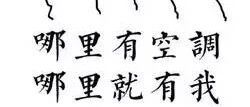 哪里有空調
哪里就有我